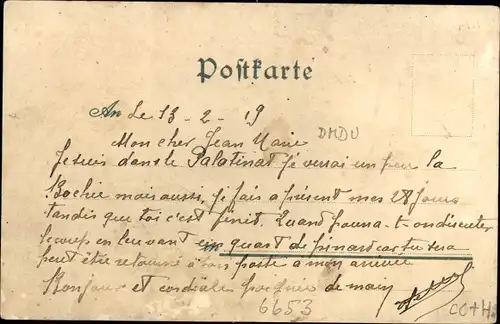 Postkarte
An Le 13 - 2 - 19
DMDU
Mon cher Jean Marie
Je suis dans le Palatinat je verrai un peu la
Bochie mais aussi, je fais a présent mes 28 jours
tandis que toi c'est finit. Quand pourra-t-on discuter
le coup en levant un quart de pinard car tu sera
peut être retourné à ton poste a mon arrivée
Bonjour et cordiale poignée de main
6653
CO+H